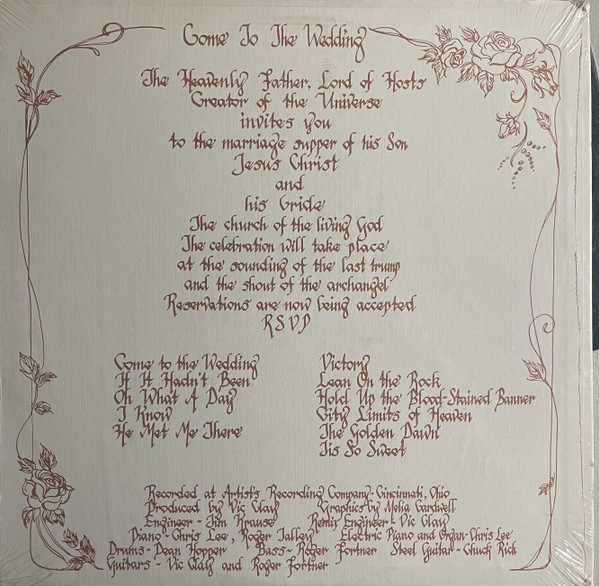 Come To The Wedding
The Heavenly Father, Lord of Hosts
Creator of the Universe
invites you
to the marriage supper of his Son
Jesus Christ
and
his bride
The church of the living God
The celebration will take place
at the sounding of the last trump
and the shout of the archangel
Reservations are now being accepted
RSVP
Come to the Wedding
If It Hadn't Been
Oh What A Day
I Know
He Met Me There
Victory
Lean On the Rock
Hold Up the Blood-Stained Banner
City Limits of Heaven
The Golden Dawn
Tis So Sweet
Recorded at Artist's Recording Company-Cincinnati, Ohio
Produced by Vic Clay Graphics by Melia Cardwell
Engineer - Jim Krause Remix Engineer - Vic Clay
Piano - Chris Lee, Roger Talley Electric Piano and Organ-Chris Lee
Drums - Dean Hopper Bass - Roger Fortner Steel Guitar - Chuck Rich
Guitars - Vic Clay and Roger Fortner